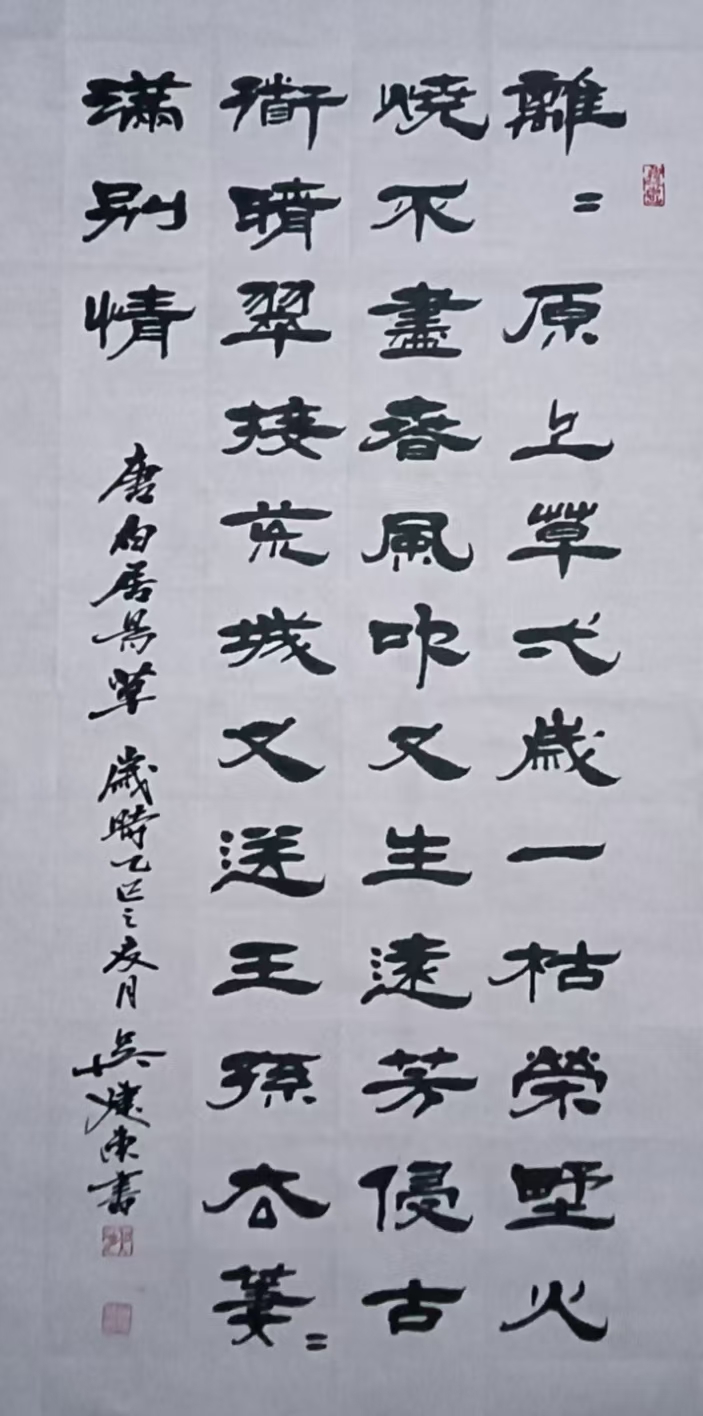 離〻原上草弌歲一枯榮墅火
燒不盡春風吹又生遠芳侵古
衜晴翠接荒城又送王孫厺萋〻
滿別情 唐白居易草 歲時乙巳之夏月 吳建書